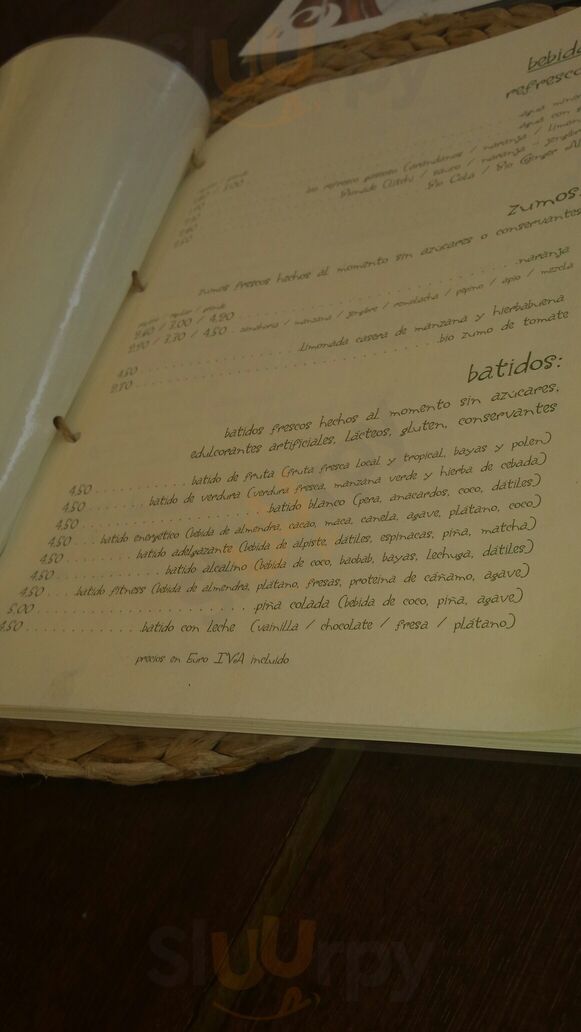 sluurpy
bebida
refresco
agua
agua con
bio refresco (arándanos / naranja / limón
Bionade (Litchi / sauco / naranja - jengibre
Bio Cola / Bio Ginger Al
zumos:
zumos frescos hechos al momento sin azúcares o conservantes
/ 3,00 / 4,90 naranja
/ 3,70 / 4,50 zanahoria / manzana / jengibre / remolacha / pepino / apio / mezcla
4,50 limonada casera de manzana y hierbabuena
2,70 bio zumo de tomate
batidos:
batidos frescos hechos al momento sin azúcares,
edulcorantes artificiales, lácteos, gluten, conservantes
4,50 batido de fruta (fruta fresca local y tropical, bayas y polen)
4,50 batido de verdura (verdura fresca, manzana verde y hierba de cebada)
4,50 batido blanco (pera, anacardos, coco, dátiles)
4,50 batido energético (bebida de almendra, cacao, maca, canela, agave, plátano, coco)
4,50 batido adelgazante (bebida de alpiste, dátiles, espinacas, piña, matcha)
4,50 batido alcalino (bebida de coco, baobab, bayas, lechuga, dátiles)
4,50 batido fitness (bebida de almendra, plátano, fresas, proteina de cáñamo, agave)
5,00 piña colada (bebida de coco, piña, agave)
4,50 batido con leche (vainilla / chocolate / fresa / plátano)
precios en Euro IVA incluido
sluurpy